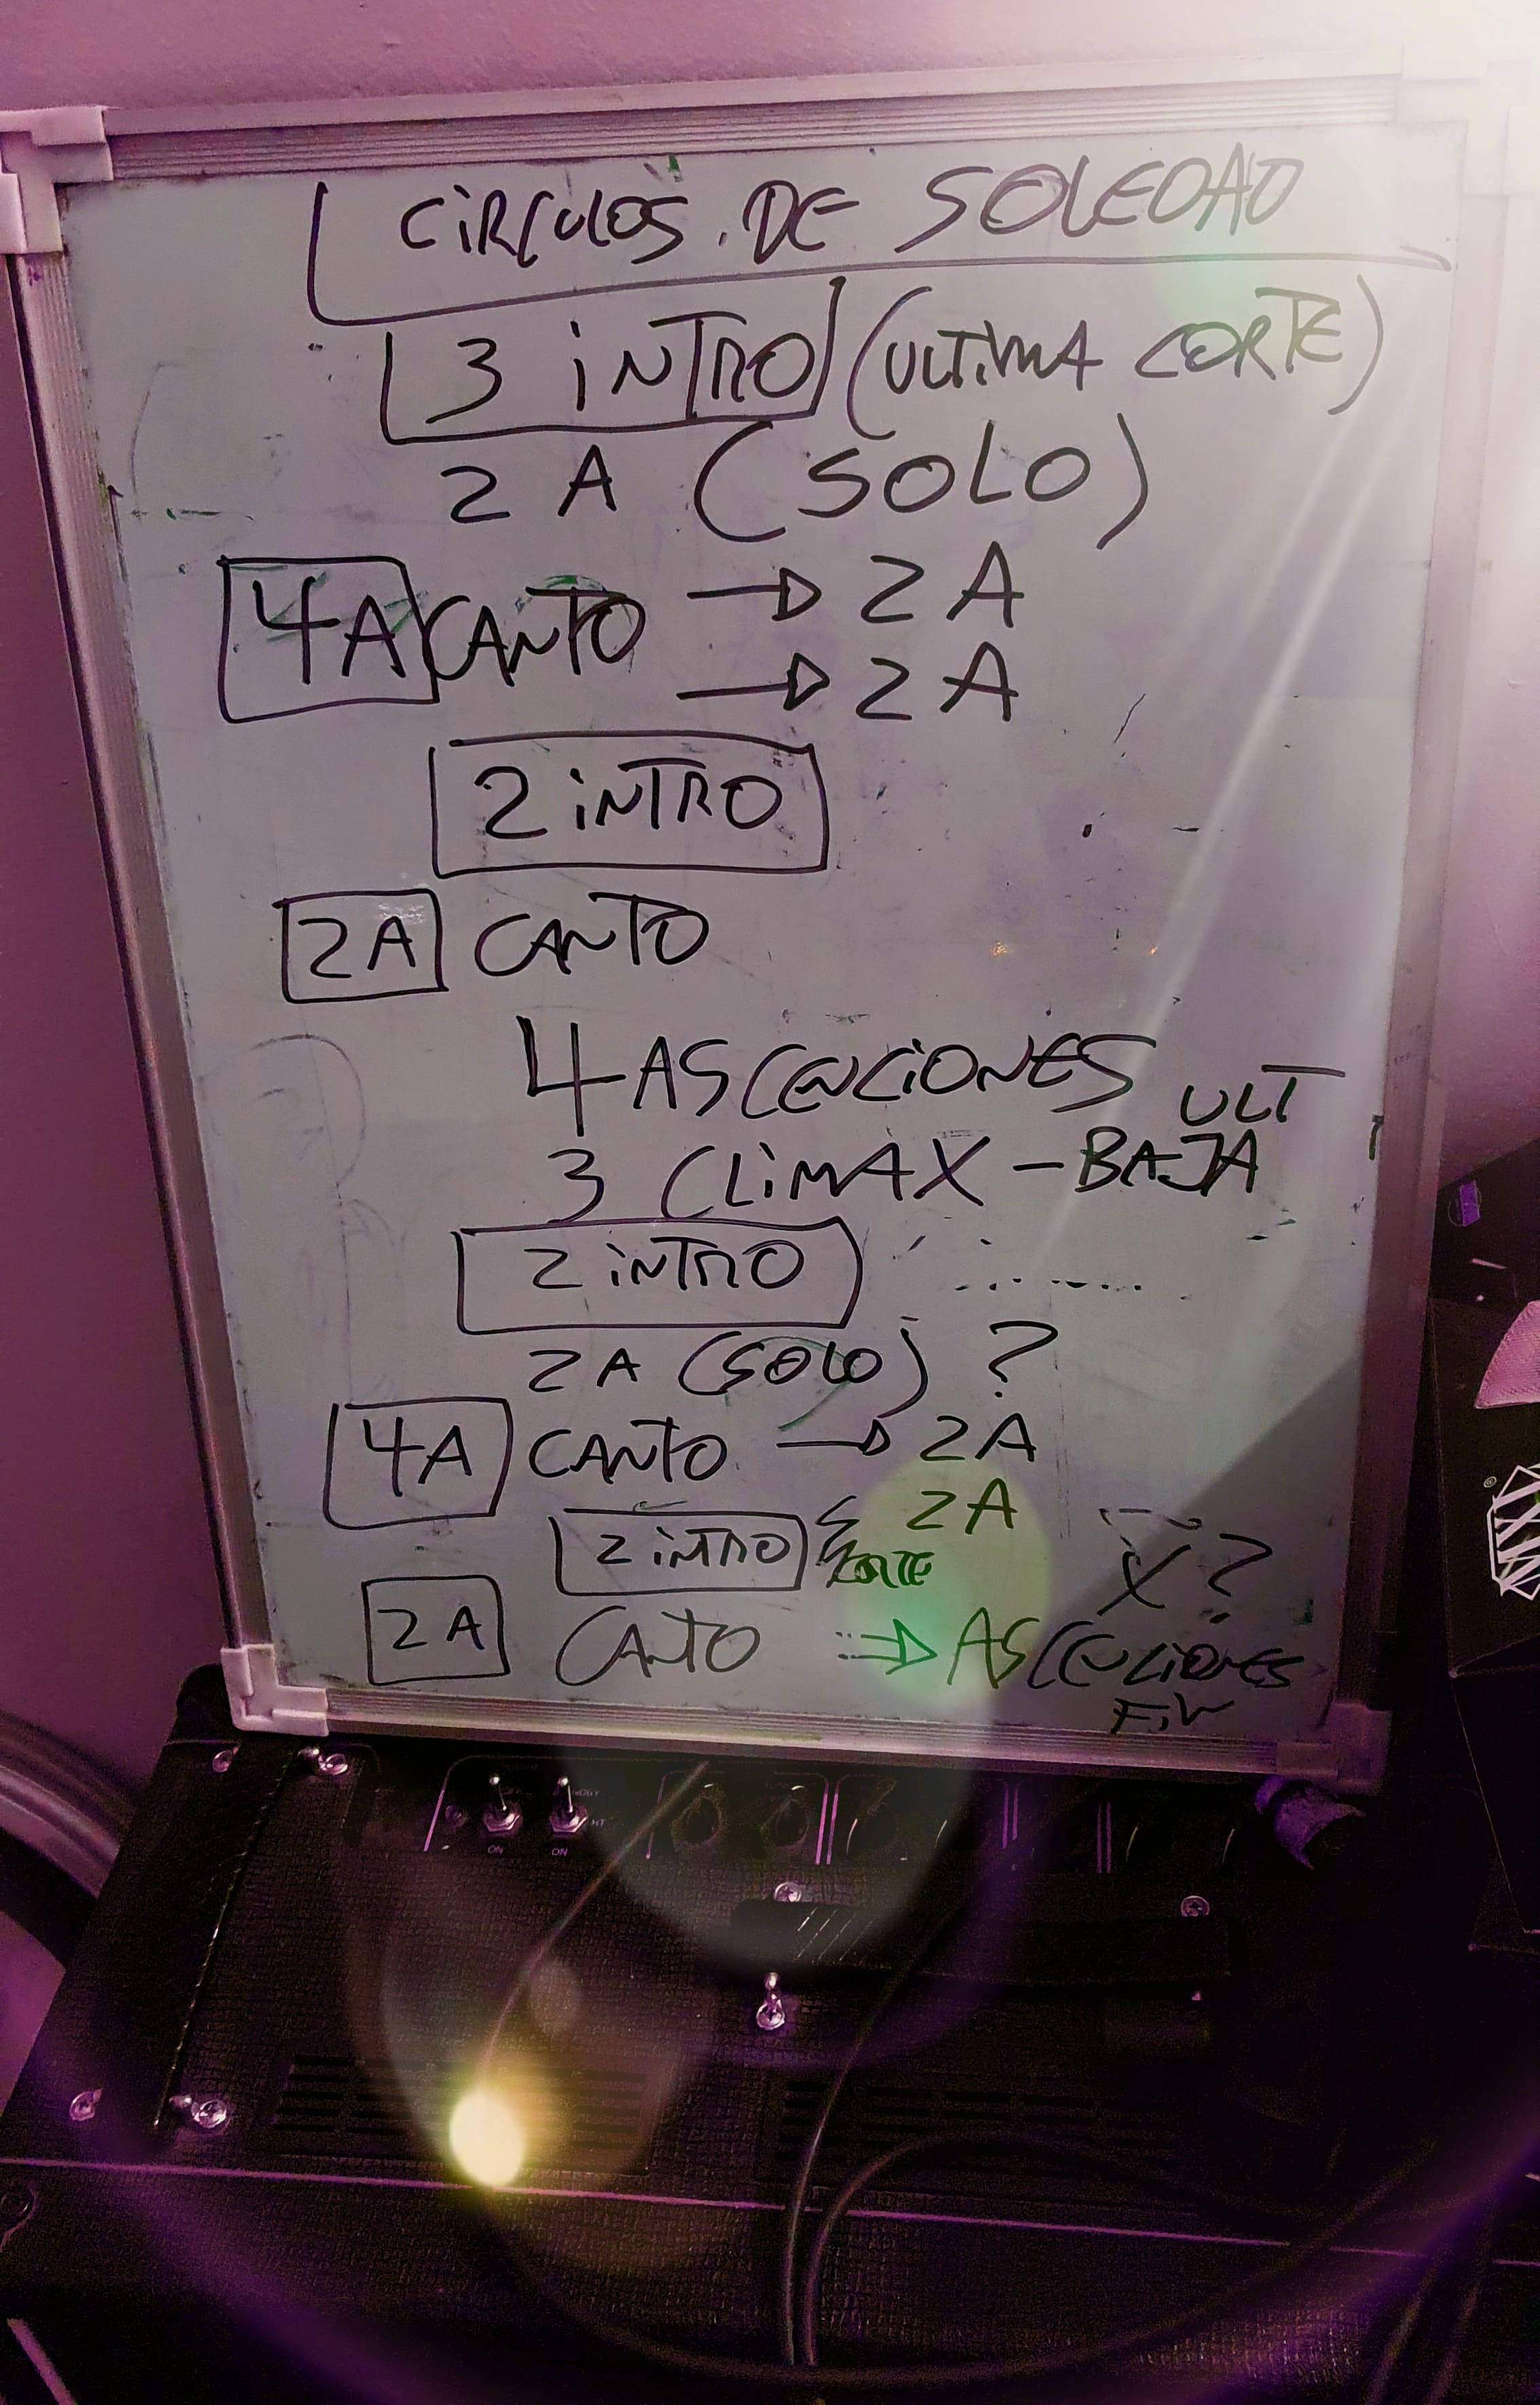 CIRCULOS DE SOLEDAD
3 INTRO (ULTIMA CORTE)
2 A (SOLO)
4A CANTO → 2 A
→ 2 A
2 INTRO
2A CANTO
4 ASCENCIONES
3 CLIMAX - BAJA ULT
2 INTRO
2A (SOLO) ?
4A CANTO → 2A
2A
2 INTRO CORTE
X ?
2A CANTO → ASCENCIONES
FIN
ON ON